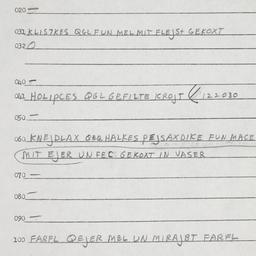 020 —
030 KLISTKES QGL FUN MEL MIT FLEJSH GEKOXT
032
040 —
042 HOLIPCES QGL GEFILTE KROJT 122 030
050 —
060 KNEJDLAX HALKES PEJSAXDIKE FUN MACE
MIT EJER UN FEC GEKOXT IN VASER
070 —
080 —
090 —
100 FARFL QEJER MEL UN MIRAJBT FARFL